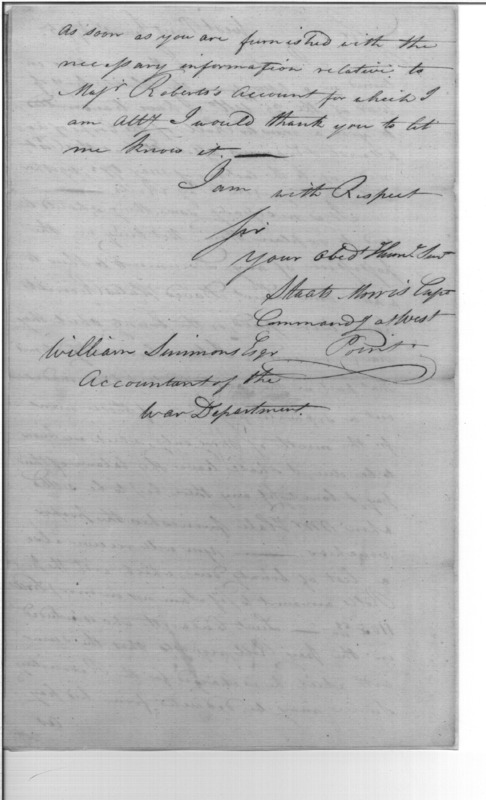 as soon as you are furnished with the
necessary information relative to
Majr Roberts's account for which I
am atty I would thank you to let
me know it.
I am with Respect
Sir
Your Obedt Humle Servt
Staats Morris Capt
Commandg at West
Point
William Simmons Esqr
Accountant of the
War Department.